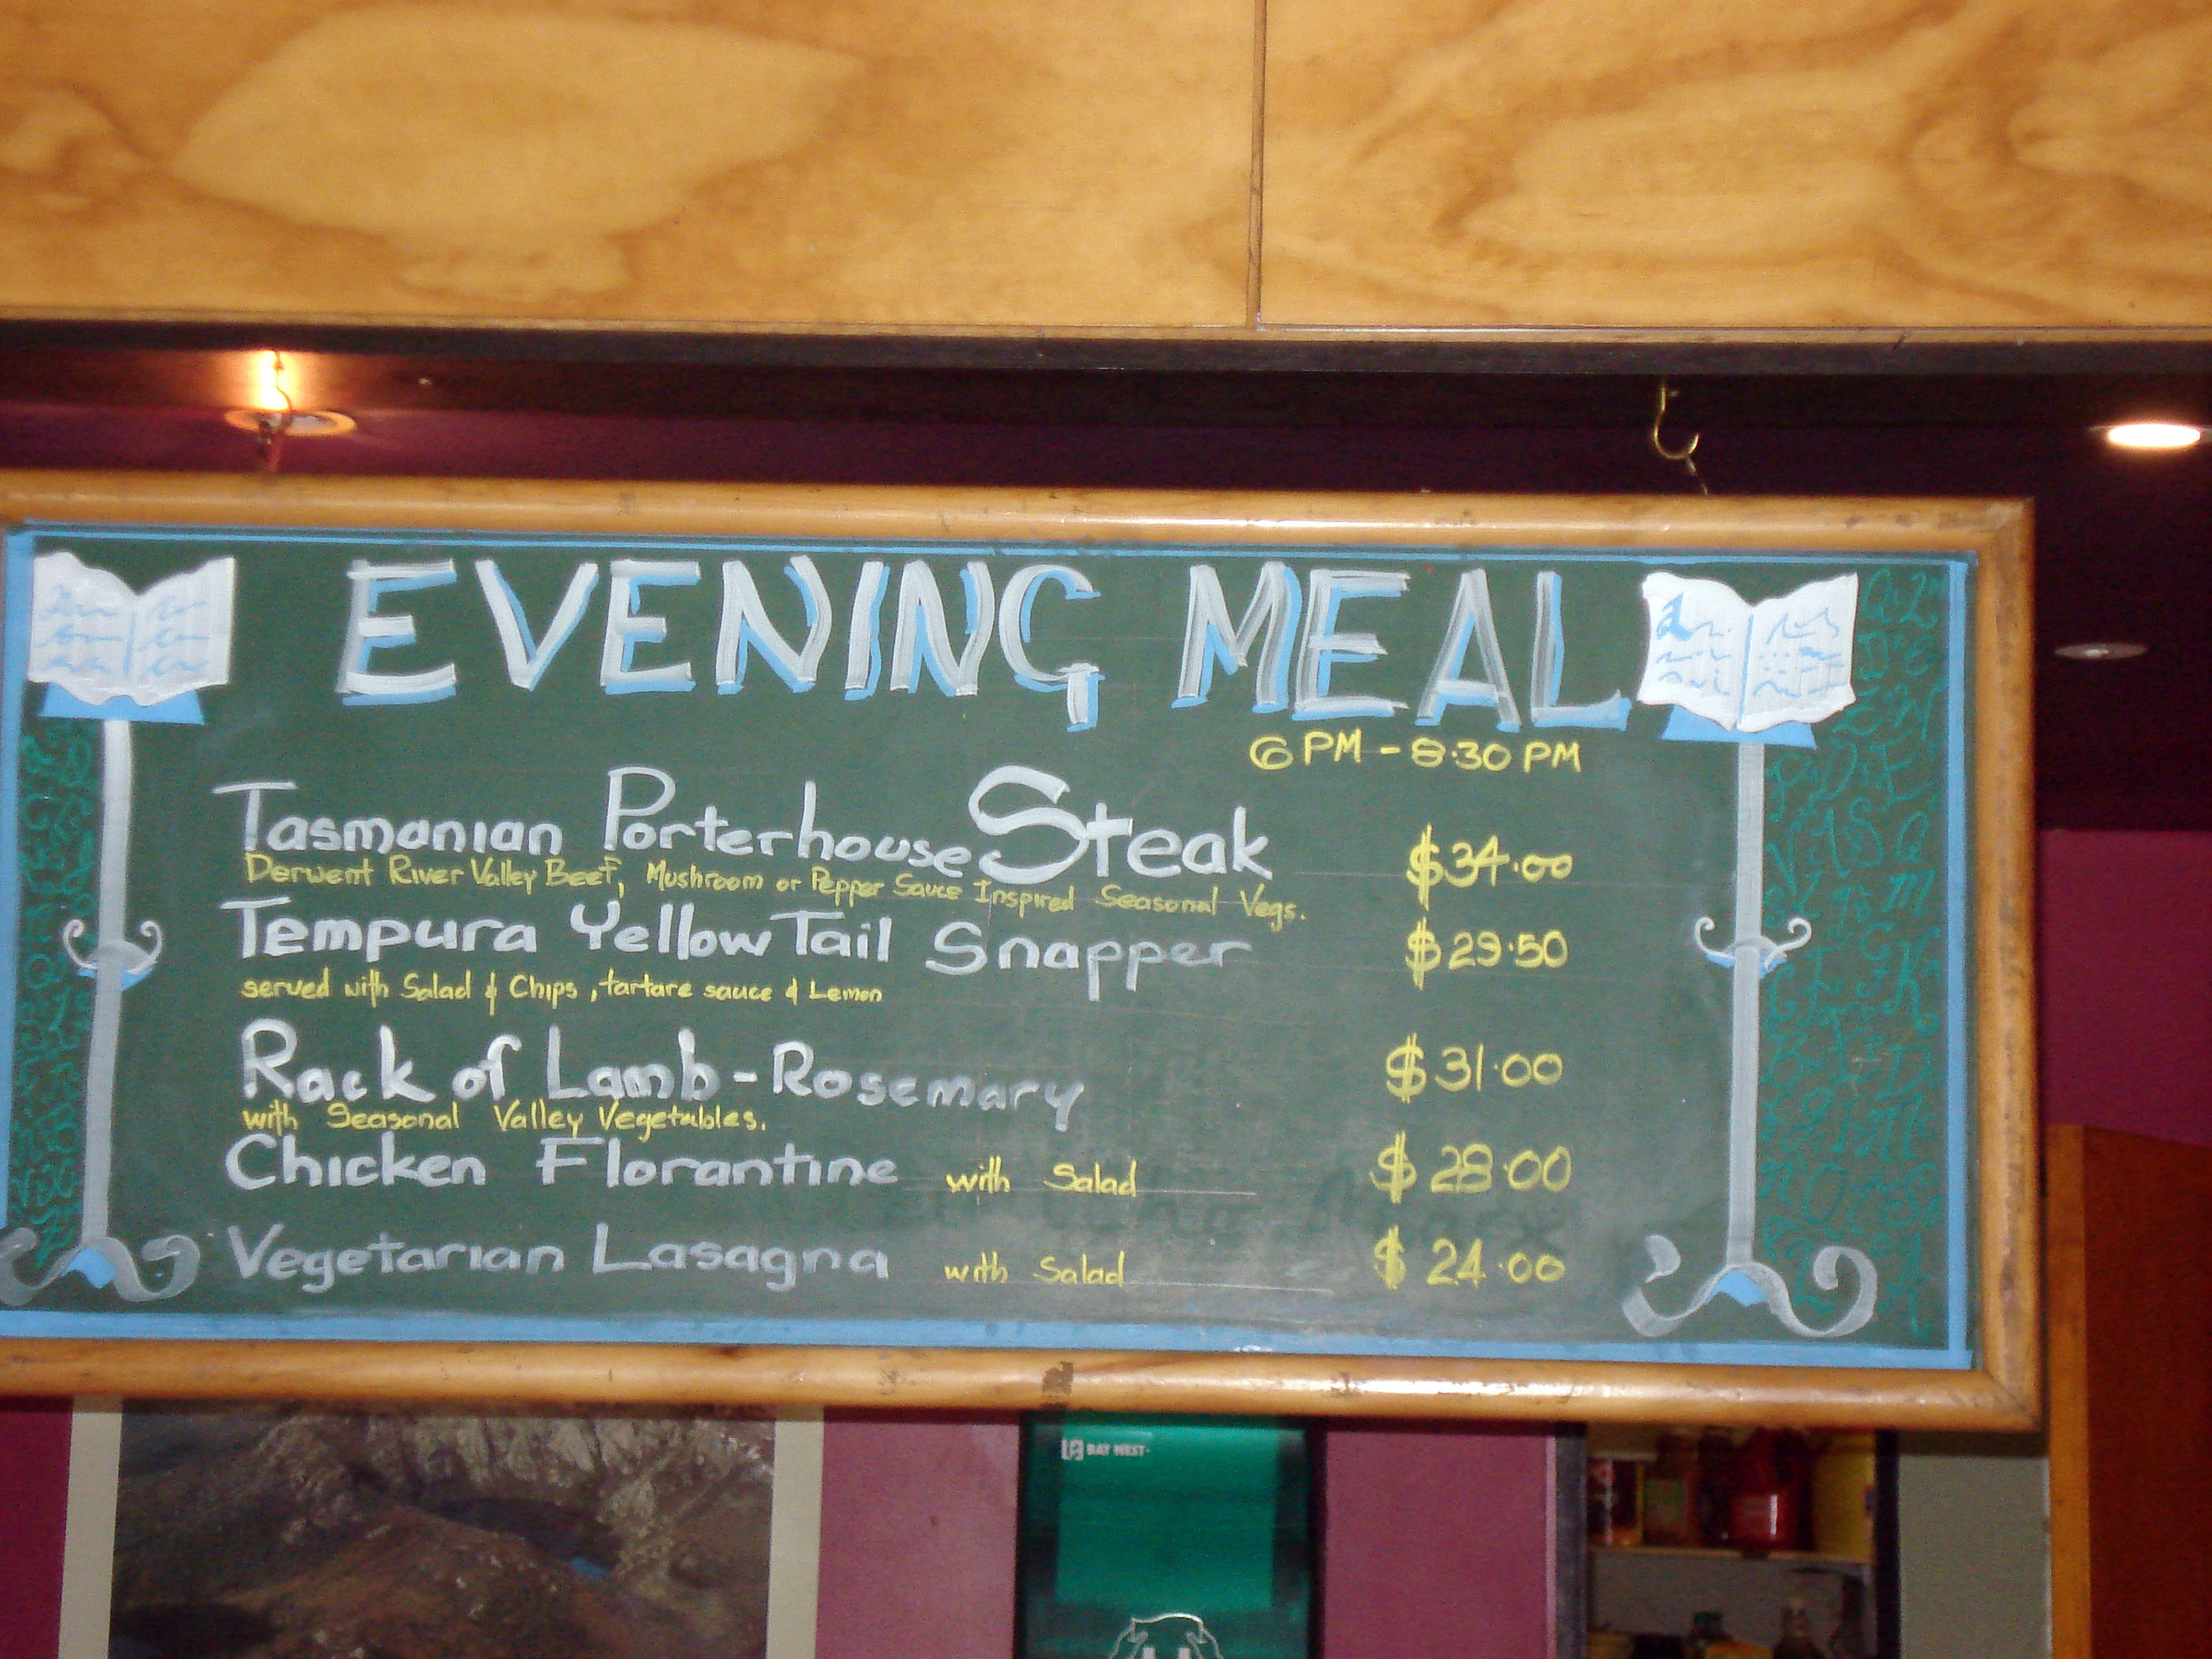 EVENING MEAL
6 PM - 8.30 PM
Tasmanian Porterhouse Steak $34.00
Derwent River Valley Beef, Mushroom or Pepper Sauce Inspired Seasonal Vegs.
Tempura Yellow Tail Snapper $29.50
served with Salad & Chips, tartare sauce & Lemon
Rack of Lamb - Rosemary $31.00
with Seasonal Valley Vegetables.
Chicken Florantine with Salad $28.00
Vegetarian Lasagna with Salad $24.00
BAY WEST